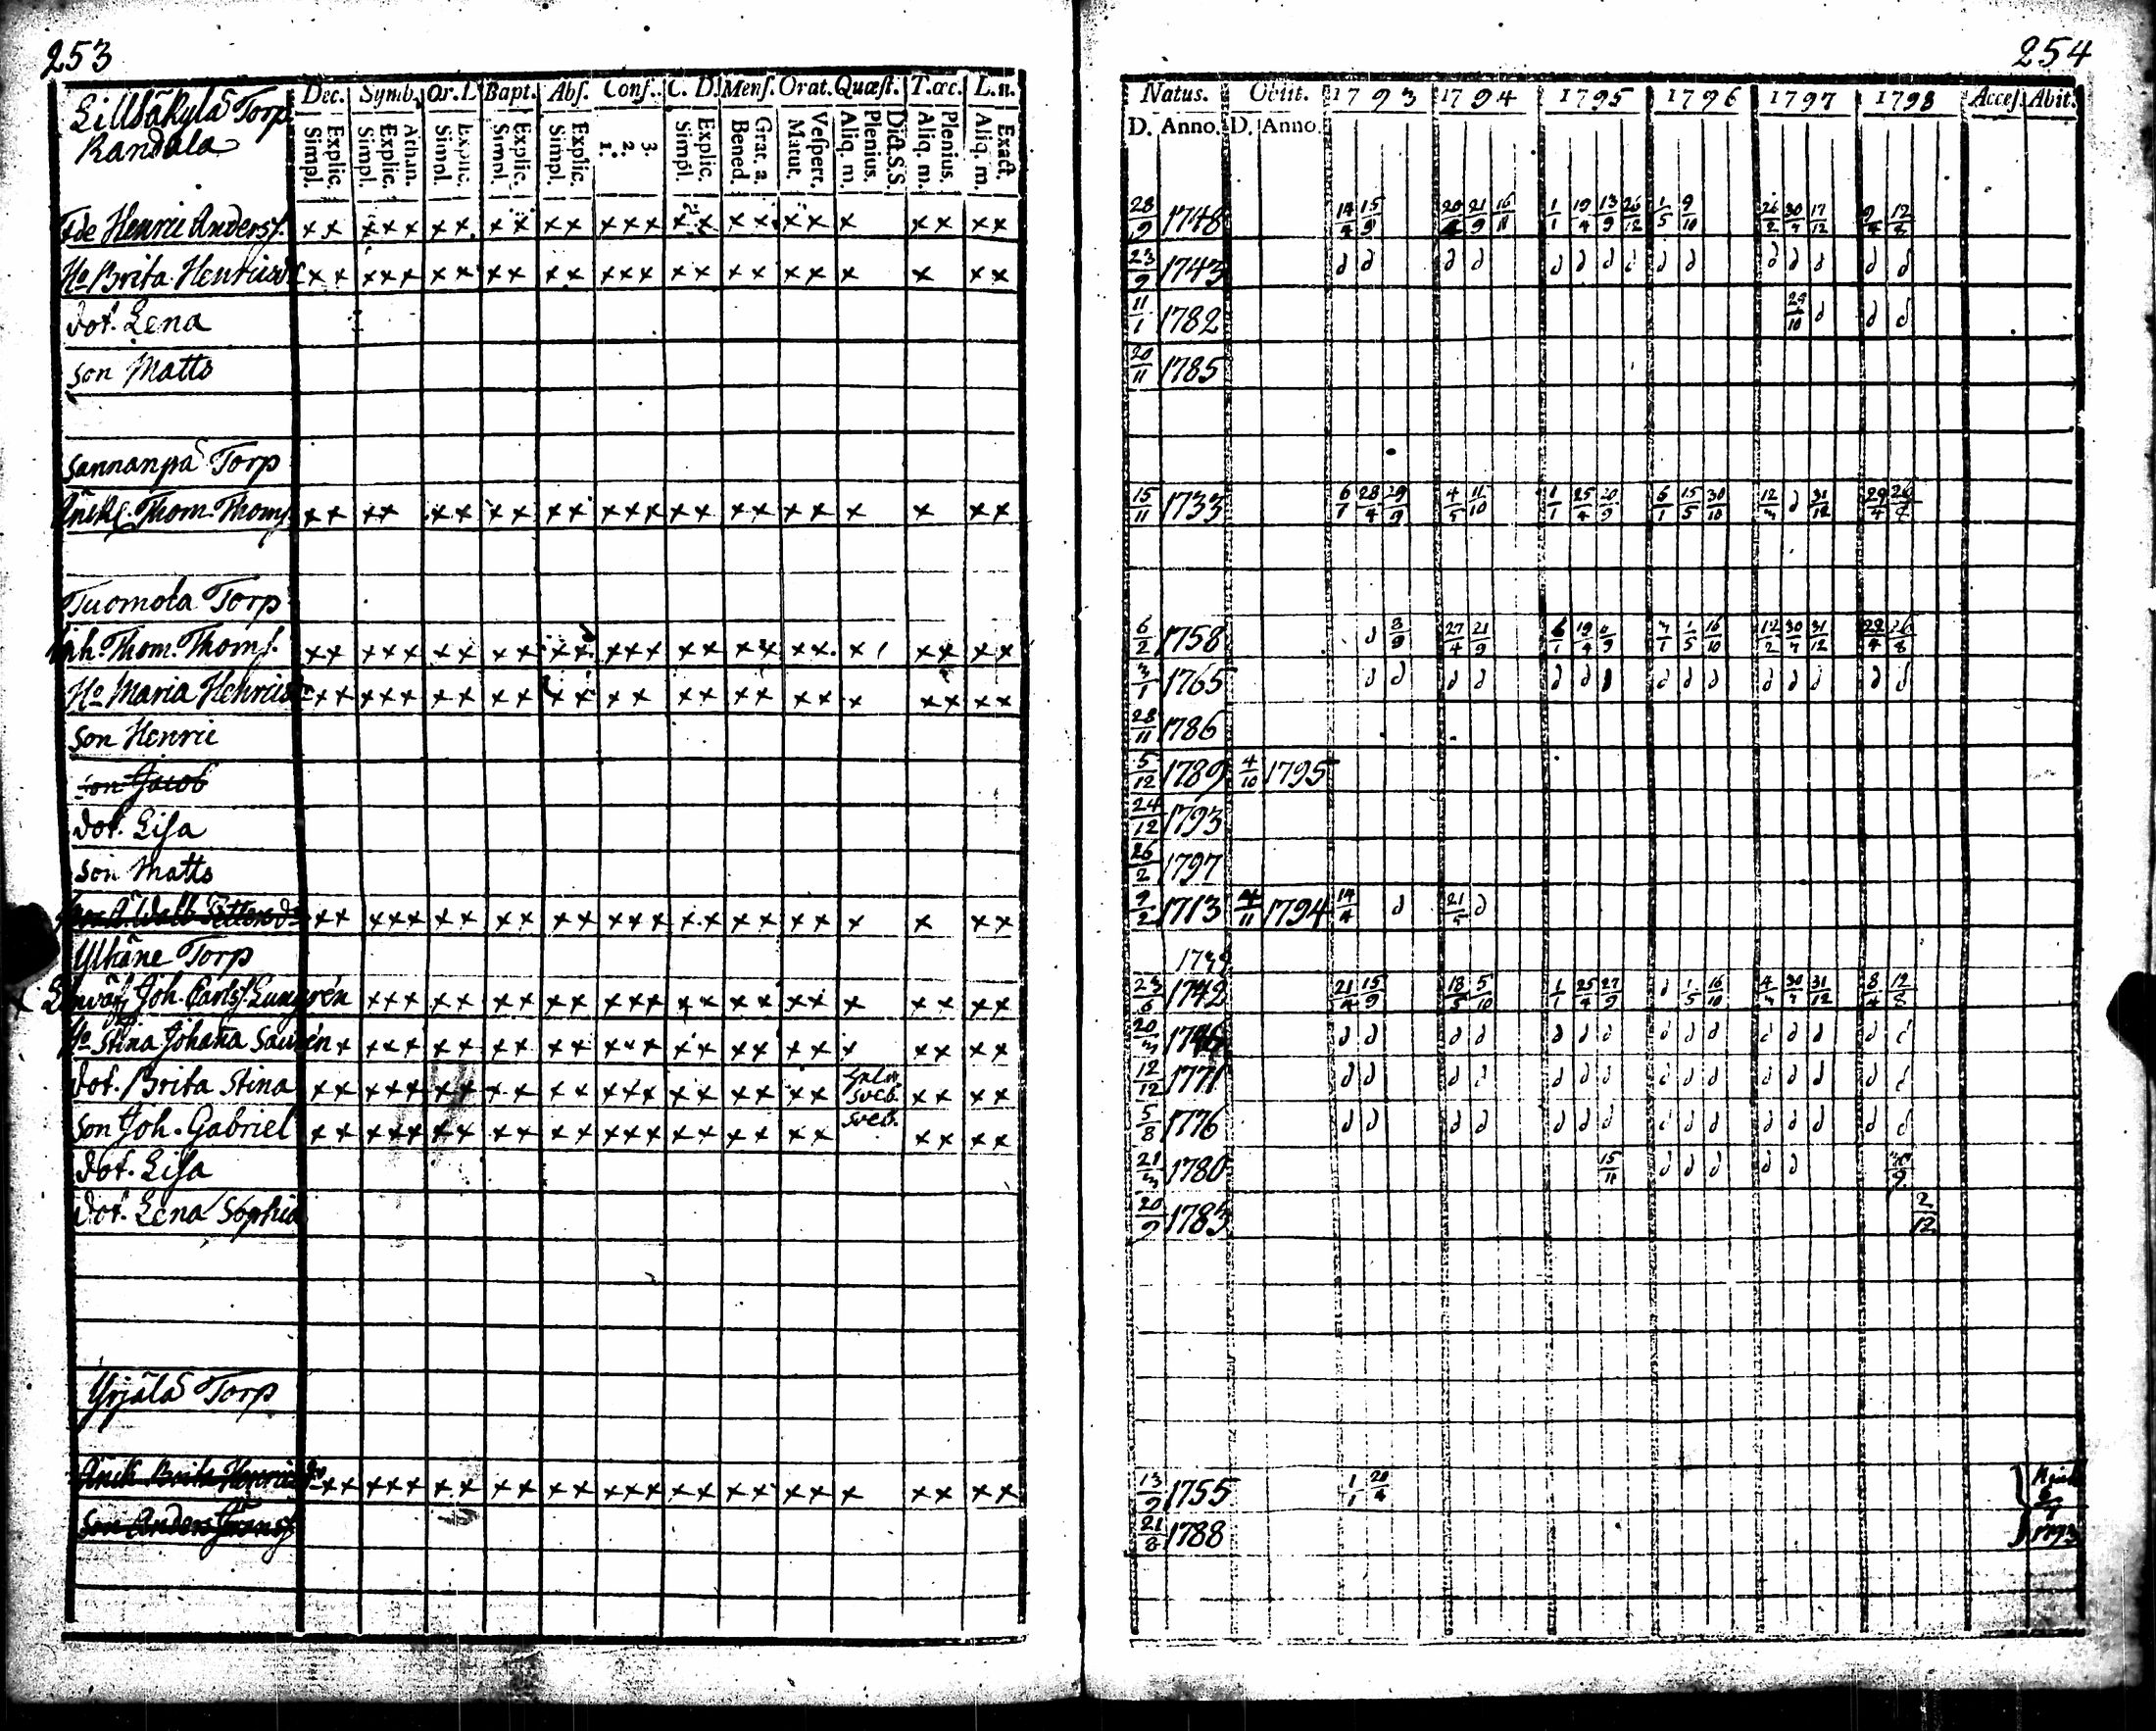 253
Torp
Randala
Dec. Symb. Or. D Bapt. Abſ. Conf. C. D. Menſ. Orat. Quæſt. T.œc. L.n.
Simpl. Explic. Simpl. Explic. Athan. Simpl. Explic. Simpl. Explic. Simpl. Explic. 1. 2. 3. Simpl. Explic. Bened. Grat. a. Matut. Veſpert. Aliq. m. Plenius. Dict.S.S. Aliq. m. Plenius. Aliq. m. Exact.
Henric Andersſ. x x x x x x x x x x x x x x x x x x x x x x x x
Ho Brita Henricsd x x x x x x x x x x x x x x x x x x x x x x x x
dot. Lena
son Matts
Sannanpä Torp
Thom Thomſ. x x x x x x x x x x x x x x x x x x x x x x x
Tuomola Torp
Thom. Thomſ. x x x x x x x x x x x x x x x x x x x x x x x x x
Ho Maria Henricsd x x x x x x x x x x x x x x x x x x x x x x x x
son Henric
son Jacob
dot. Liſa
son Matts
x x x x x x x x x x x x x x x x x x x x x x x x
Ylhäne Torp
Joh. Carlsſ. Lungrén x x x x x x x x x x x x x x x x x x x x x x x
Ho Stina Johana Saurén x x x x x x x x x x x x x x x x x x x x x x x x
dot. Brita Stina x x x x x x x x x x x x x x x x x x x x sveb. x x x x
son Joh. Gabriel x x x x x x x x x x x x x x x x x x x x sveb. x x x x
dot. Liſa
dot. Lena Sophia
Yrjälä Torp
Brita x x x x x x x x x x x x x x x x x x x x x x x x x
son Anders
254
Natus. Obiit. 1793 1794 1795 1796 1797 1798 Acceſ. Abit.
D. Anno. D. Anno.
28/9 1748 14/4 15/9 21/9 16/11 1/1 19/4 13/9 26/12 1/5 9/10 26/2 30/7 17/12 12/8
23/9 1743 d d d d d d d d d d d d d d d
11/1 1782 29/10 d d d
20/11 1785
15/11 1733 28/4 29/9 4/5 11/10 1/1 25/4 20/9 6/1 15/5 30/10 d 31/12 29/4
6/2 1758 d 3/9 27/4 21/9 19/4 1/5 16/10 12/2 30/7 31/12 26/8
3/1 1765 d d d d d d d d d d d d d d
28/11 1786
5/12 1789 4/10 1795
24/12 1793
26/2 1797
9/2 1713 4/11 1794 14/4 d 21/5 d
23/6 1742 21/4 15/9 18/5 5/10 1/1 25/4 27/9 d 1/5 16/10 4/3 30/7 31/12 8/4 12/8
20/3 d d d d d d d d d d d d d d d
12/12 1771 d d d d d d d d d d d d d d d
5/8 1776 d d d d d d d d d d d d d d d
21/3 1780 15/11 d d d d d
20/9 1783 2/12
13/9 1755 1/1 20/4
1788 1793